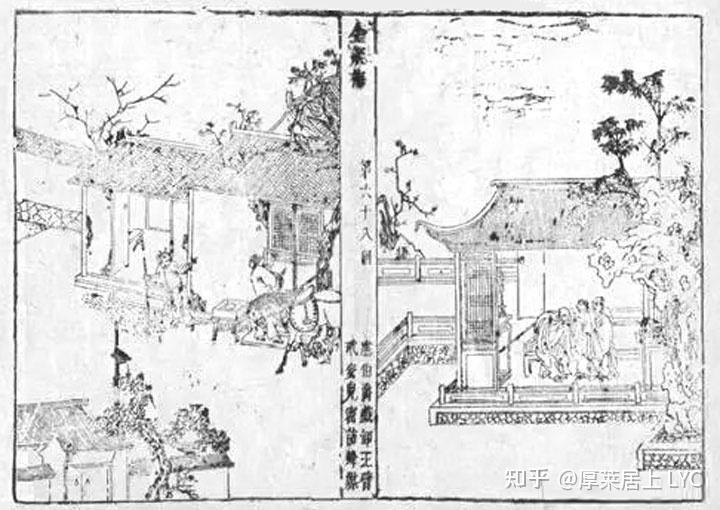 金瓶梅
第六十八回
應伯爵戲啣玉臂
玳安兒密訪蜂媒
知乎 @厚莱居上 LYC